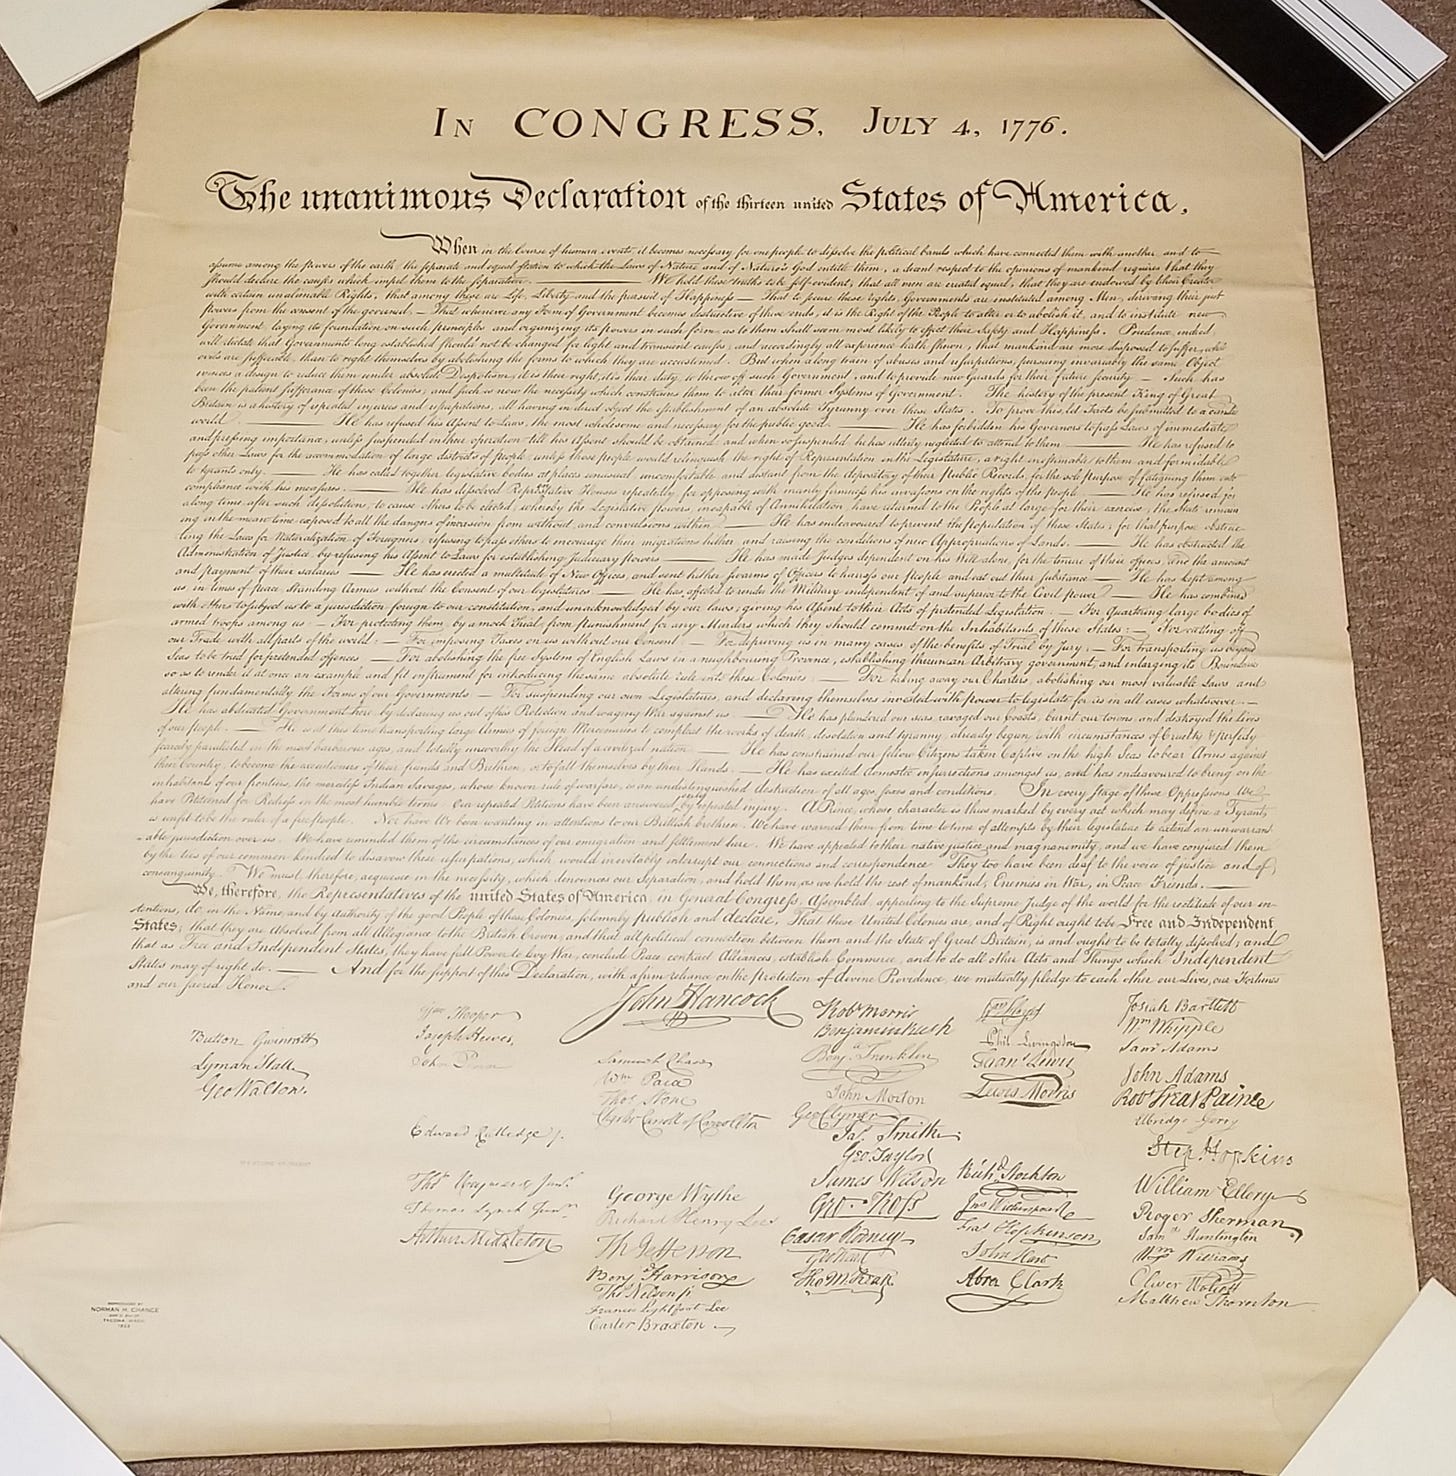 In CONGRESS, July 4, 1776.
The unanimous Declaration of the thirteen united States of America,
When in the Course of human events, it becomes necessary for one people to dissolve the political bands which have connected them with another, and to
assume among the powers of the earth, the separate and equal station to which the Laws of Nature and of Nature's God entitle them, a decent respect to the opinions of mankind requires that they
should declare the causes which impel them to the separation. We hold these truths to be self-evident, that all men are created equal, that they are endowed by their Creator
with certain unalienable Rights, that among these are Life, Liberty and the pursuit of Happiness — That to secure these rights, Governments are instituted among Men, deriving their just
powers from the consent of the governed, — That whenever any Form of Government becomes destructive of these ends, it is the Right of the People to alter or to abolish it, and to institute new
Government, laying its foundation on such principles and organizing its powers in such form, as to them shall seem most likely to effect their Safety and Happiness. Prudence, indeed,
will dictate that Governments long established should not be changed for light and transient causes; and accordingly all experience hath shewn, that mankind are more disposed to suffer, while
evils are sufferable, than to right themselves by abolishing the forms to which they are accustomed. But when a long train of abuses and usurpations, pursuing invariably the same Object
evinces a design to reduce them under absolute Despotism, it is their right, it is their duty, to throw off such Government, and to provide new Guards for their future security. — Such has
been the patient sufferance of these Colonies; and such is now the necessity which constrains them to alter their former Systems of Government. The history of the present King of Great
Britain is a history of repeated injuries and usurpations, all having in direct object the establishment of an absolute Tyranny over these States. To prove this, let Facts be submitted to a candid
world. He has refused his Assent to Laws, the most wholesome and necessary for the public good. He has forbidden his Governors to pass Laws of immediate
and pressing importance, unless suspended in their operation till his Assent should be obtained; and when so suspended, he has utterly neglected to attend to them. He has refused to
pass other Laws for the accommodation of large districts of people, unless those people would relinquish the right of Representation in the Legislature, a right inestimable to them and formidable
to tyrants only. He has called together legislative bodies at places unusual, uncomfortable, and distant from the depository of their public Records, for the sole purpose of fatiguing them into
compliance with his measures. He has dissolved Representative Houses repeatedly, for opposing with manly firmness his invasions on the rights of the people. He has refused for
a long time, after such dissolutions, to cause others to be elected; whereby the Legislative powers, incapable of Annihilation, have returned to the People at large for their exercise; the State remain
ing in the mean time exposed to all the dangers of invasion from without, and convulsions within. He has endeavoured to prevent the population of these States; for that purpose obstruc
ting the Laws for Naturalization of Foreigners; refusing to pass others to encourage their migrations hither, and raising the conditions of new Appropriations of Lands. He has obstructed the
Administration of Justice, by refusing his Assent to Laws for establishing Judiciary powers. He has made Judges dependent on his Will alone, for the tenure of their offices, and the amount
and payment of their salaries. He has erected a multitude of New Offices, and sent hither swarms of Officers to harrass our people, and eat out their substance. He has kept among
us, in times of peace, Standing Armies without the Consent of our legislatures. He has affected to render the Military independent of and superior to the Civil power. He has combined
with others to subject us to a jurisdiction foreign to our constitution, and unacknowledged by our laws; giving his Assent to their Acts of pretended Legislation: — For Quartering large bodies of
armed troops among us: — For protecting them, by a mock Trial, from punishment for any Murders which they should commit on the Inhabitants of these States: — For cutting off
our Trade with all parts of the world: — For imposing Taxes on us without our Consent: — For depriving us in many cases, of the benefits of Trial by Jury: — For transporting us beyond
Seas to be tried for pretended offences — For abolishing the free System of English Laws in a neighbouring Province, establishing therein an Arbitrary government, and enlarging its Boundaries
so as to render it at once an example and fit instrument for introducing the same absolute rule into these Colonies: — For taking away our Charters, abolishing our most valuable Laws, and
altering fundamentally the Forms of our Governments: — For suspending our own Legislatures, and declaring themselves invested with power to legislate for us in all cases whatsoever. —
He has abdicated Government here, by declaring us out of his Protection and waging War against us. He has plundered our seas, ravaged our Coasts, burnt our towns, and destroyed the lives
of our people. He is at this time transporting large Armies of foreign Mercenaries to compleat the works of death, desolation and tyranny, already begun with circumstances of Cruelty & perfidy
scarcely paralleled in the most barbarous ages, and totally unworthy the Head of a civilized nation. He has constrained our fellow Citizens taken Captive on the high Seas to bear Arms against
their Country, to become the executioners of their friends and Brethren, or to fall themselves by their Hands. He has excited domestic insurrections amongst us, and has endeavoured to bring on the
inhabitants of our frontiers, the merciless Indian Savages, whose known rule of warfare, is an undistinguished destruction of all ages, sexes and conditions. In every stage of these Oppressions We
have Petitioned for Redress in the most humble terms: Our repeated Petitions have been answered only by repeated injury. A Prince, whose character is thus marked by every act which may define a Tyrant,
is unfit to be the ruler of a free people. Nor have We been wanting in attentions to our Brittish brethren. We have warned them from time to time of attempts by their legislature to extend an unwarrant
able jurisdiction over us. We have reminded them of the circumstances of our emigration and settlement here. We have appealed to their native justice and magnanimity, and we have conjured them
by the ties of our common kindred to disavow these usurpations, which, would inevitably interrupt our connections and correspondence. They too have been deaf to the voice of justice and of
consanguinity. We must, therefore, acquiesce in the necessity, which denounces our Separation, and hold them, as we hold the rest of mankind, Enemies in War, in Peace Friends.
We, therefore, the Representatives of the united States of America, in General Congress, Assembled, appealing to the Supreme Judge of the world for the rectitude of our in
tentions, do, in the Name, and by authority of the good People of these Colonies, solemnly publish and declare, That these United Colonies are, and of Right ought to be Free and Independent
States; that they are Absolved from all Allegiance to the British Crown, and that all political connection between them and the State of Great Britain, is and ought to be totally dissolved; and
that as Free and Independent States, they have full Power to levy War, conclude Peace, contract Alliances, establish Commerce, and to do all other Acts and Things which Independent
States may of right do. And for the support of this Declaration, with a firm reliance on the protection of divine Providence, we mutually pledge to each other our Lives, our Fortunes
and our sacred Honor.
John Hancock
Button Gwinnett
Lyman Hall
Geo Walton.
Wm Hooper
Joseph Hewes,
John Penn
Edward Rutledge
Thos Heyward Junr
Thomas Lynch Junr
Arthur Middleton
Samuel Chase
Wm Paca
Thos Stone
Charles Carroll of Carrollton
George Wythe
Richard Henry Lee
Th Jefferson
Benj Harrison
Thos Nelson jr
Francis Lightfoot Lee
Carter Braxton
Robt Morris
Benjamin Rush
Benj Franklin
John Morton
Geo Clymer
Jas Smith
Geo Taylor
James Wilson
Geo Ross
Caesar Rodney
Geo Read
Tho M:Kean
Wm Floyd
Phil Livingston
Frans Lewis
Lewis Morris
Richd Stockton
Jno Witherspoon
Fras Hopkinson
John Hart
Abra Clark
Josiah Bartlett
Wm Whipple
Saml Adams
John Adams
Robt Treat Paine
Elbridge Gerry
Step Hopkins
William Ellery
Roger Sherman
Saml Huntington
Wm Williams
Oliver Wolcott
Matthew Thornton
REPRODUCED BY
NORMAN H. CHANCE
TACOMA, WASH.